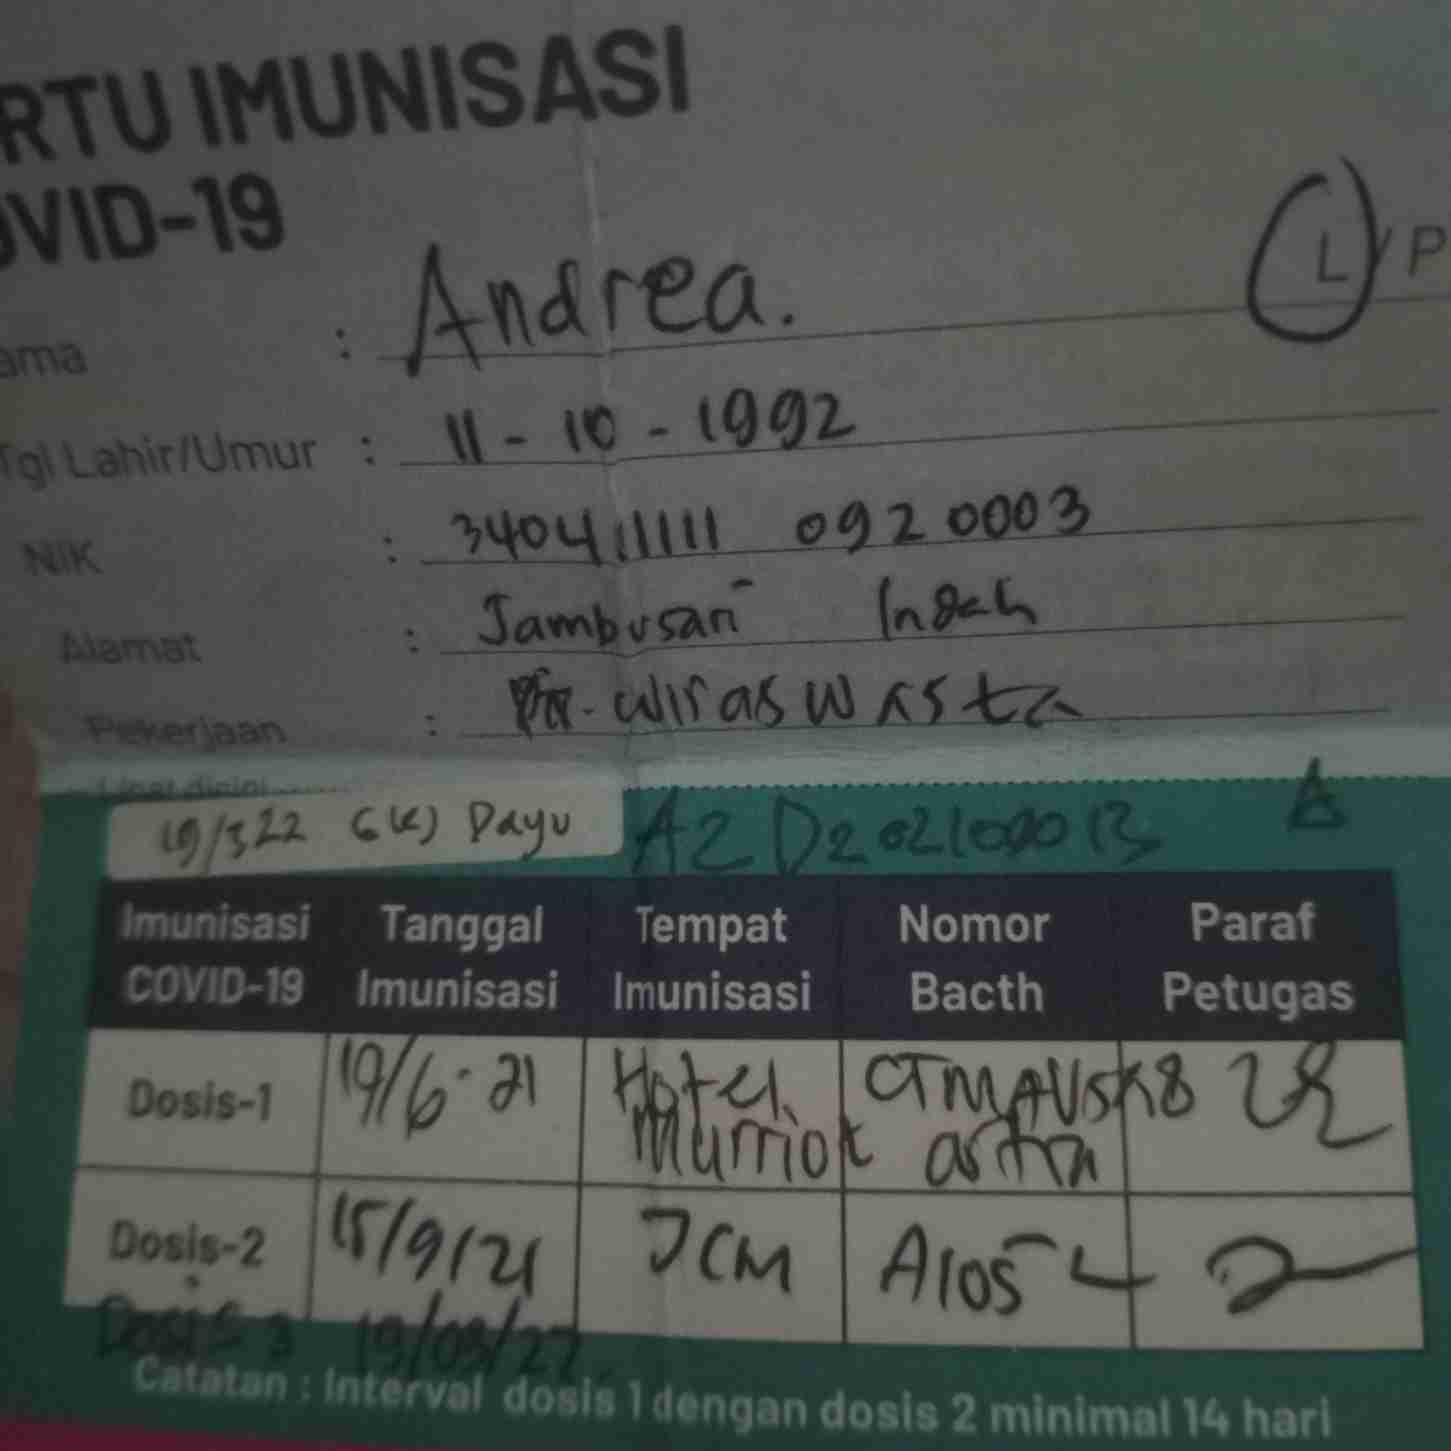 RTU IMUNISASI
OVID-19
L/P
ama : Andrea.
Tgl Lahir/Umur : 11 - 10 - 1992
NIK : 3404111110920003
Alamat : Jambusari Indah
Pekerjaan : wiraswasta
19/322 6(K) Dayu
Imunisasi COVID-19 Tanggal Imunisasi Tempat Imunisasi Nomor Bacth Paraf Petugas
Dosis-1 19/6-21 Hotel
Dosis-2 15/9/21 JCM
Dosis 3 19/03/22
Catatan : Interval dosis 1 dengan dosis 2 minimal 14 hari